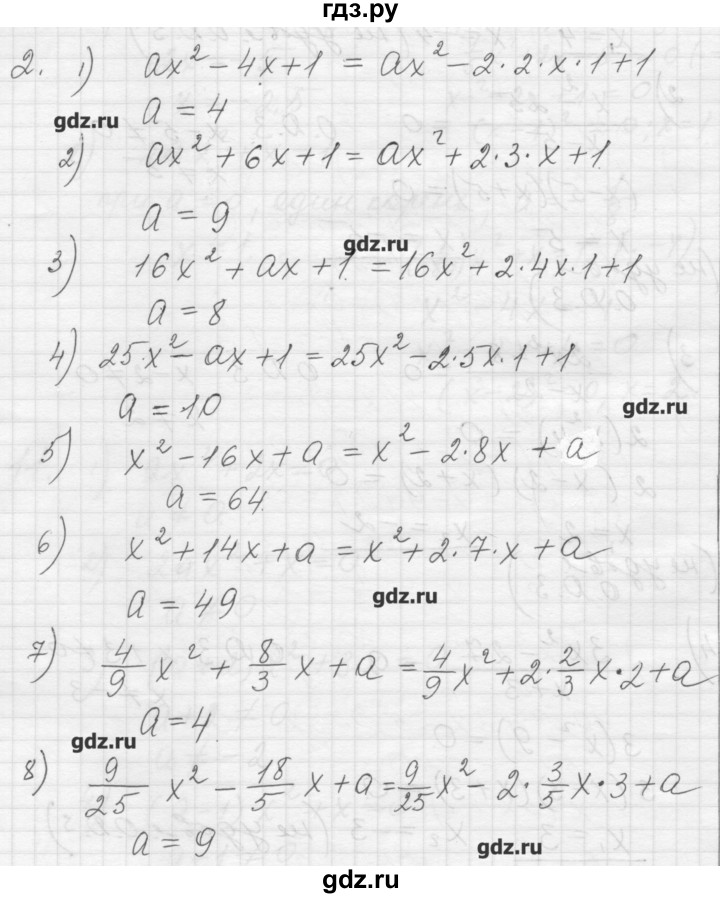 гдз.ру
2. 1) ax² - 4x + 1 = ax² - 2·2·x·1 + 1
a = 4
gdz.ru
2) ax² + 6x + 1 = ax² + 2·3·x + 1
a = 9
gdz.ru
3) 16x² + ax + 1 = 16x² + 2·4x·1 + 1
a = 8
4) 25x² - ax + 1 = 25x² - 2·5x·1 + 1
a = 10
gdz.ru
5) x² - 16x + a = x² - 2·8x + a
a = 64
6) x² + 14x + a = x² + 2·7·x + a
gdz.ru
a = 49
7) 4/9 x² + 8/3 x + a = 4/9 x² + 2·2/3 x·2 + a
a = 4
gdz.ru
8) 9/25 x² - 18/5 x + a = 9/25 x² - 2·3/5 x·3 + a
a = 9
gdz.ru
gdz.ru